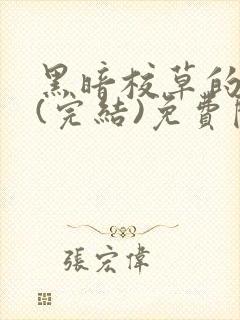 黑暗校草的
(完結)免費
張宏偉